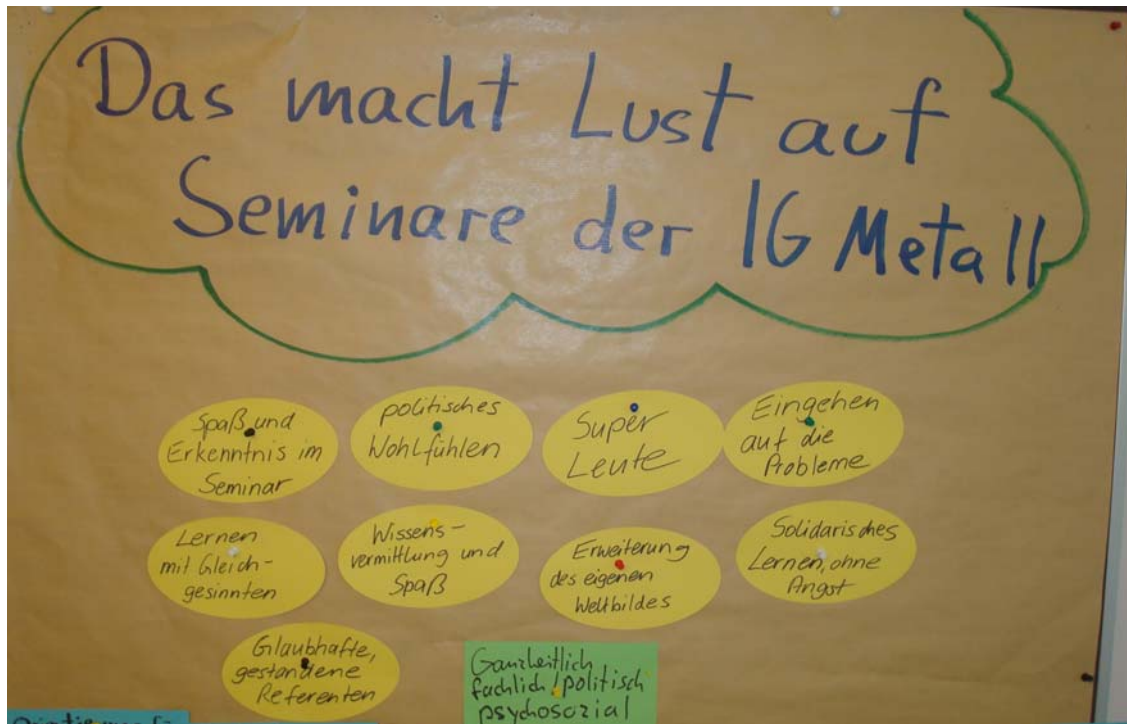 Das macht Lust auf
Seminare der IG Metall
Spaß und
Erkenntnis im
Seminar
politisches
Wohlfühlen
Super
Leute
Eingehen
auf die
Probleme
Lernen
mit Gleich-
gesinnten
Wissens-
vermittlung und
Spaß
Erweiterung
des eigenen
Weltbildes
Solidarisches
Lernen, ohne
Angst
Glaubhafte,
gestandene
Referenten
Ganzheitlich
fachlich/politisch
psychosozial